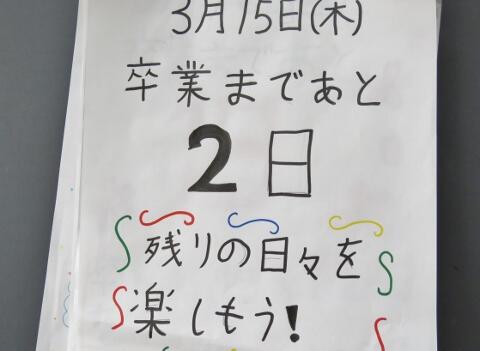 3月15日(木)
卒業まであと
2日
残りの日々を
楽しもう!